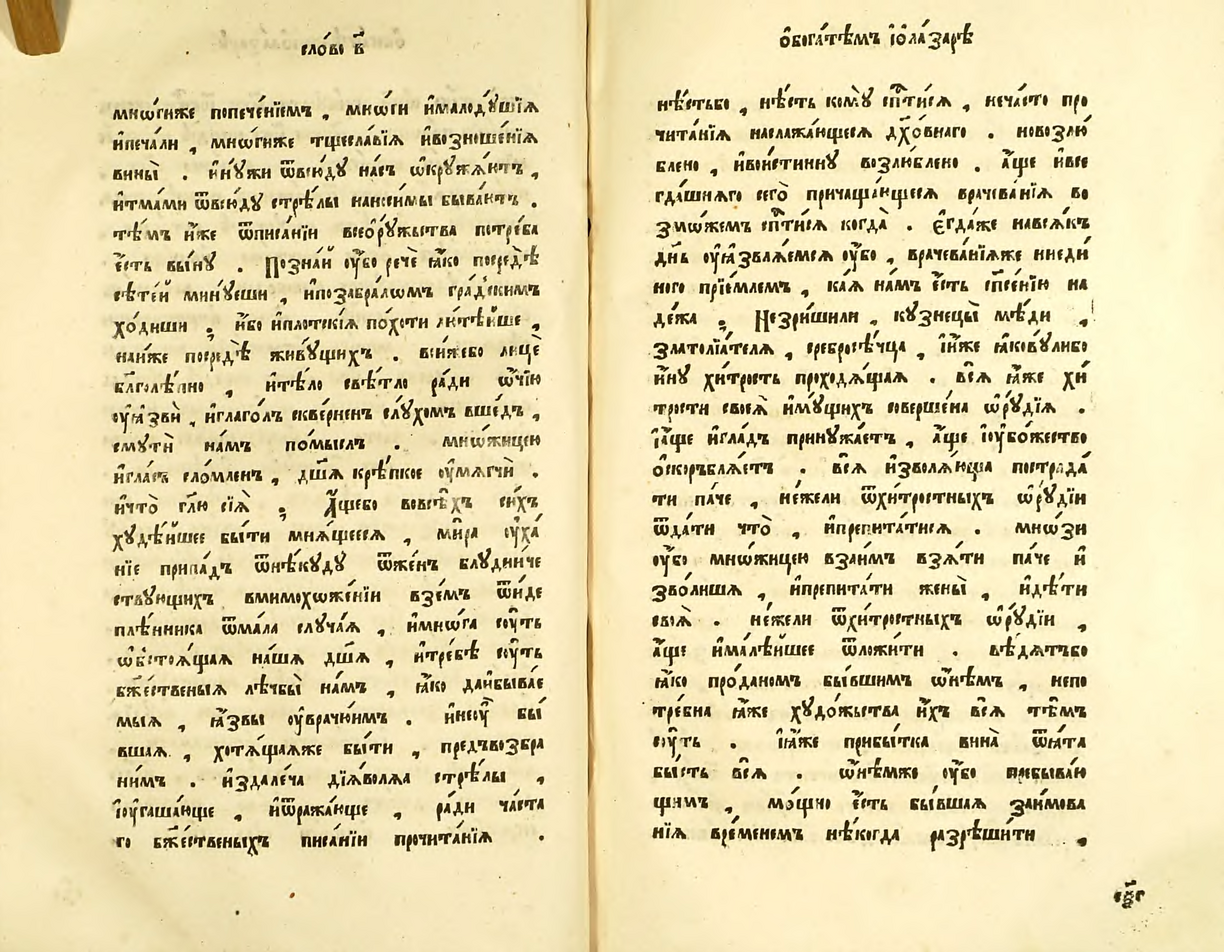 сло́во в҃
мнѡ́гиже попече́нїемъ , мнѡ́ги ѝмалоду́шїѧ
ѝпеча́ли , мнѡ́гиже тщесла́вїѧ ѝвозноше́нїѧ
вины̀ . ѝну́жи ѿвсю́ду на́съ ѡ҆кружа́ютъ ,
ѝтма́ми ѿвсю́ду стрѣ́лы наноси́мы быва́ютъ .
тѣ́мъ и҆́же ѿписа́нїи всео́ружьства потре́ба
є҆́сть вы́ну . Позна́и ѹ҆́бо речѐ ꙗ҆́ко посредѣ̀
сѣте́й мину́еши , ѝпозабра́лѡмъ гра́дскимъ
хо́диши ; ѝбо ѝпло́тскїѧ по́хоти лютѣ́йше ,
наи́же посредѣ̀ живу́щихъ . всиѧ́жебо лицѐ
бл҃голѣ́пно , ѝтѣ́ло свѣ́тло ра́ди ѻ҆чїю
ѹ҆ꙗзвѝ , ѝглаго́лъ скве́рненъ слу́хомъ вше́дъ ,
смутѝ на́мъ по́мыслъ . мно́жицею
ѝгла́съ сло́мленъ , дш҃а̀ крѣ́пкое ѹ҆мѧгчѝ .
ѝчто̀ гл҃ю сїѧ̀ ; А҆́щебо вовсѣ́хъ си́хъ
худѣ́йшее бы́ти мнѧ́щеесѧ , ми́ра ѹ҆ха́
нїе припа́дъ ѿнѣ́куду ѿже́нъ блудни́че
ствующихъ вмимохѡже́нїи взе́мъ ѿи́де
плѣ́нника ѿма́ла слу́чаѧ , ѝмнѡ́га су́ть
ѡ҆бстоѧ́щаѧ на́шѧ дш҃а̀ , ѝтре́бѣ су́ть
бж҃е́ственыѧ лѣ́чбы на́мъ , ꙗ҆́ко даи́быва́е
мыѧ , ꙗ҆́звы ѹ҆врачю́имъ . ѝнесу́ бы́
вшаѧ , хотѧ́щаѧже бы́ти , предъвозбра
ни́мъ . ѝздале́ча дїѧ́волѧ стрѣ́лы ,
їѹгаша́юще , ѝѿража́юще , ра́ди ча́ста
го бж҃е́ственыхъ писа́нїи прочита́нїѧ .
ѻ҆бога́тѣмъ їѻла́зарѣ
нѣ́стьбо , нѣ́сть кому̀ сп҃ти́сѧ , неча́сто про
чита́нїѧ наслажа́ющесѧ дх҃о́внаго . новозлю́
блено , ѝвои́стинну возлю́блено . а҆́ще ѝвсе
гда́шнѧго сего̀ причаща́ющесѧ врачева́нїѧ во
змо́жемъ сп҃ти́сѧ когда̀ . Є҆гда́же навсѧ́къ
дн҃ь ѹ҆ꙗзвлѧ́емсѧ ѹ҆́бо , врачева́нїѧже ниеди́
ного прїе́млемъ , ка́ѧ на́мъ є҆́сть сп҃се́нїю на
де́жа ; Незри́шили , кузнецы̀ мѣ́ди ,
златолїа́телѧ , сребросѣ́чца , їи҆́же ꙗ҆кову́либо
и҆́ну хи́трость проходѧ́щаѧ . всѧ̀ ꙗ҆́же хи́
трости своеѧ̀ ѝму́щихъ соверше́на ѡ҆ру́дїѧ .
їа҆́ще ѝгла́дъ принужа́етъ , а҆́ще їѹ҆бо́жество
ѻ҆скорблѧ́етъ . всѧ̀ ѝзволѧ́юща пострада́
ти па́че , не́жели ѿхи́тростныхъ ѡ҆ру́дїи
ѿда́ти что̀ , ѝпрепита́тисѧ . мно́зи
ѹ҆́бо мно́жицею взаи́мъ взѧ́ти па́че ѝ
зво́лишѧ , ѝпрепита́ти жены̀ , ѝдѣ́ти
своѧ̀ . не́жели ѿхи́тростныхъ ѡ҆ру́дїи ,
а҆́ще ѝмалѣ́йшее ѿложи́ти . вѣ́дѧтъбо
ꙗ҆́ко про́даномъ бы́вшимъ ѻ҆нѣ́мъ , непо
тре́бна ꙗ҆́же худо́жьства и҆́хъ всѧ̀ тѣ́мъ
су́ть . їꙗ҆́же прибы́тка вина̀ ѿѧ́та
бы́сть всѧ̀ . ѻ҆нѣ́мже ѹ҆́бо пребыва́ю
щимъ , мо́щно є҆́сть бы́вшаѧ заимова́
нїѧ вре́менемъ нѣ́когда разрѣши́ти ,